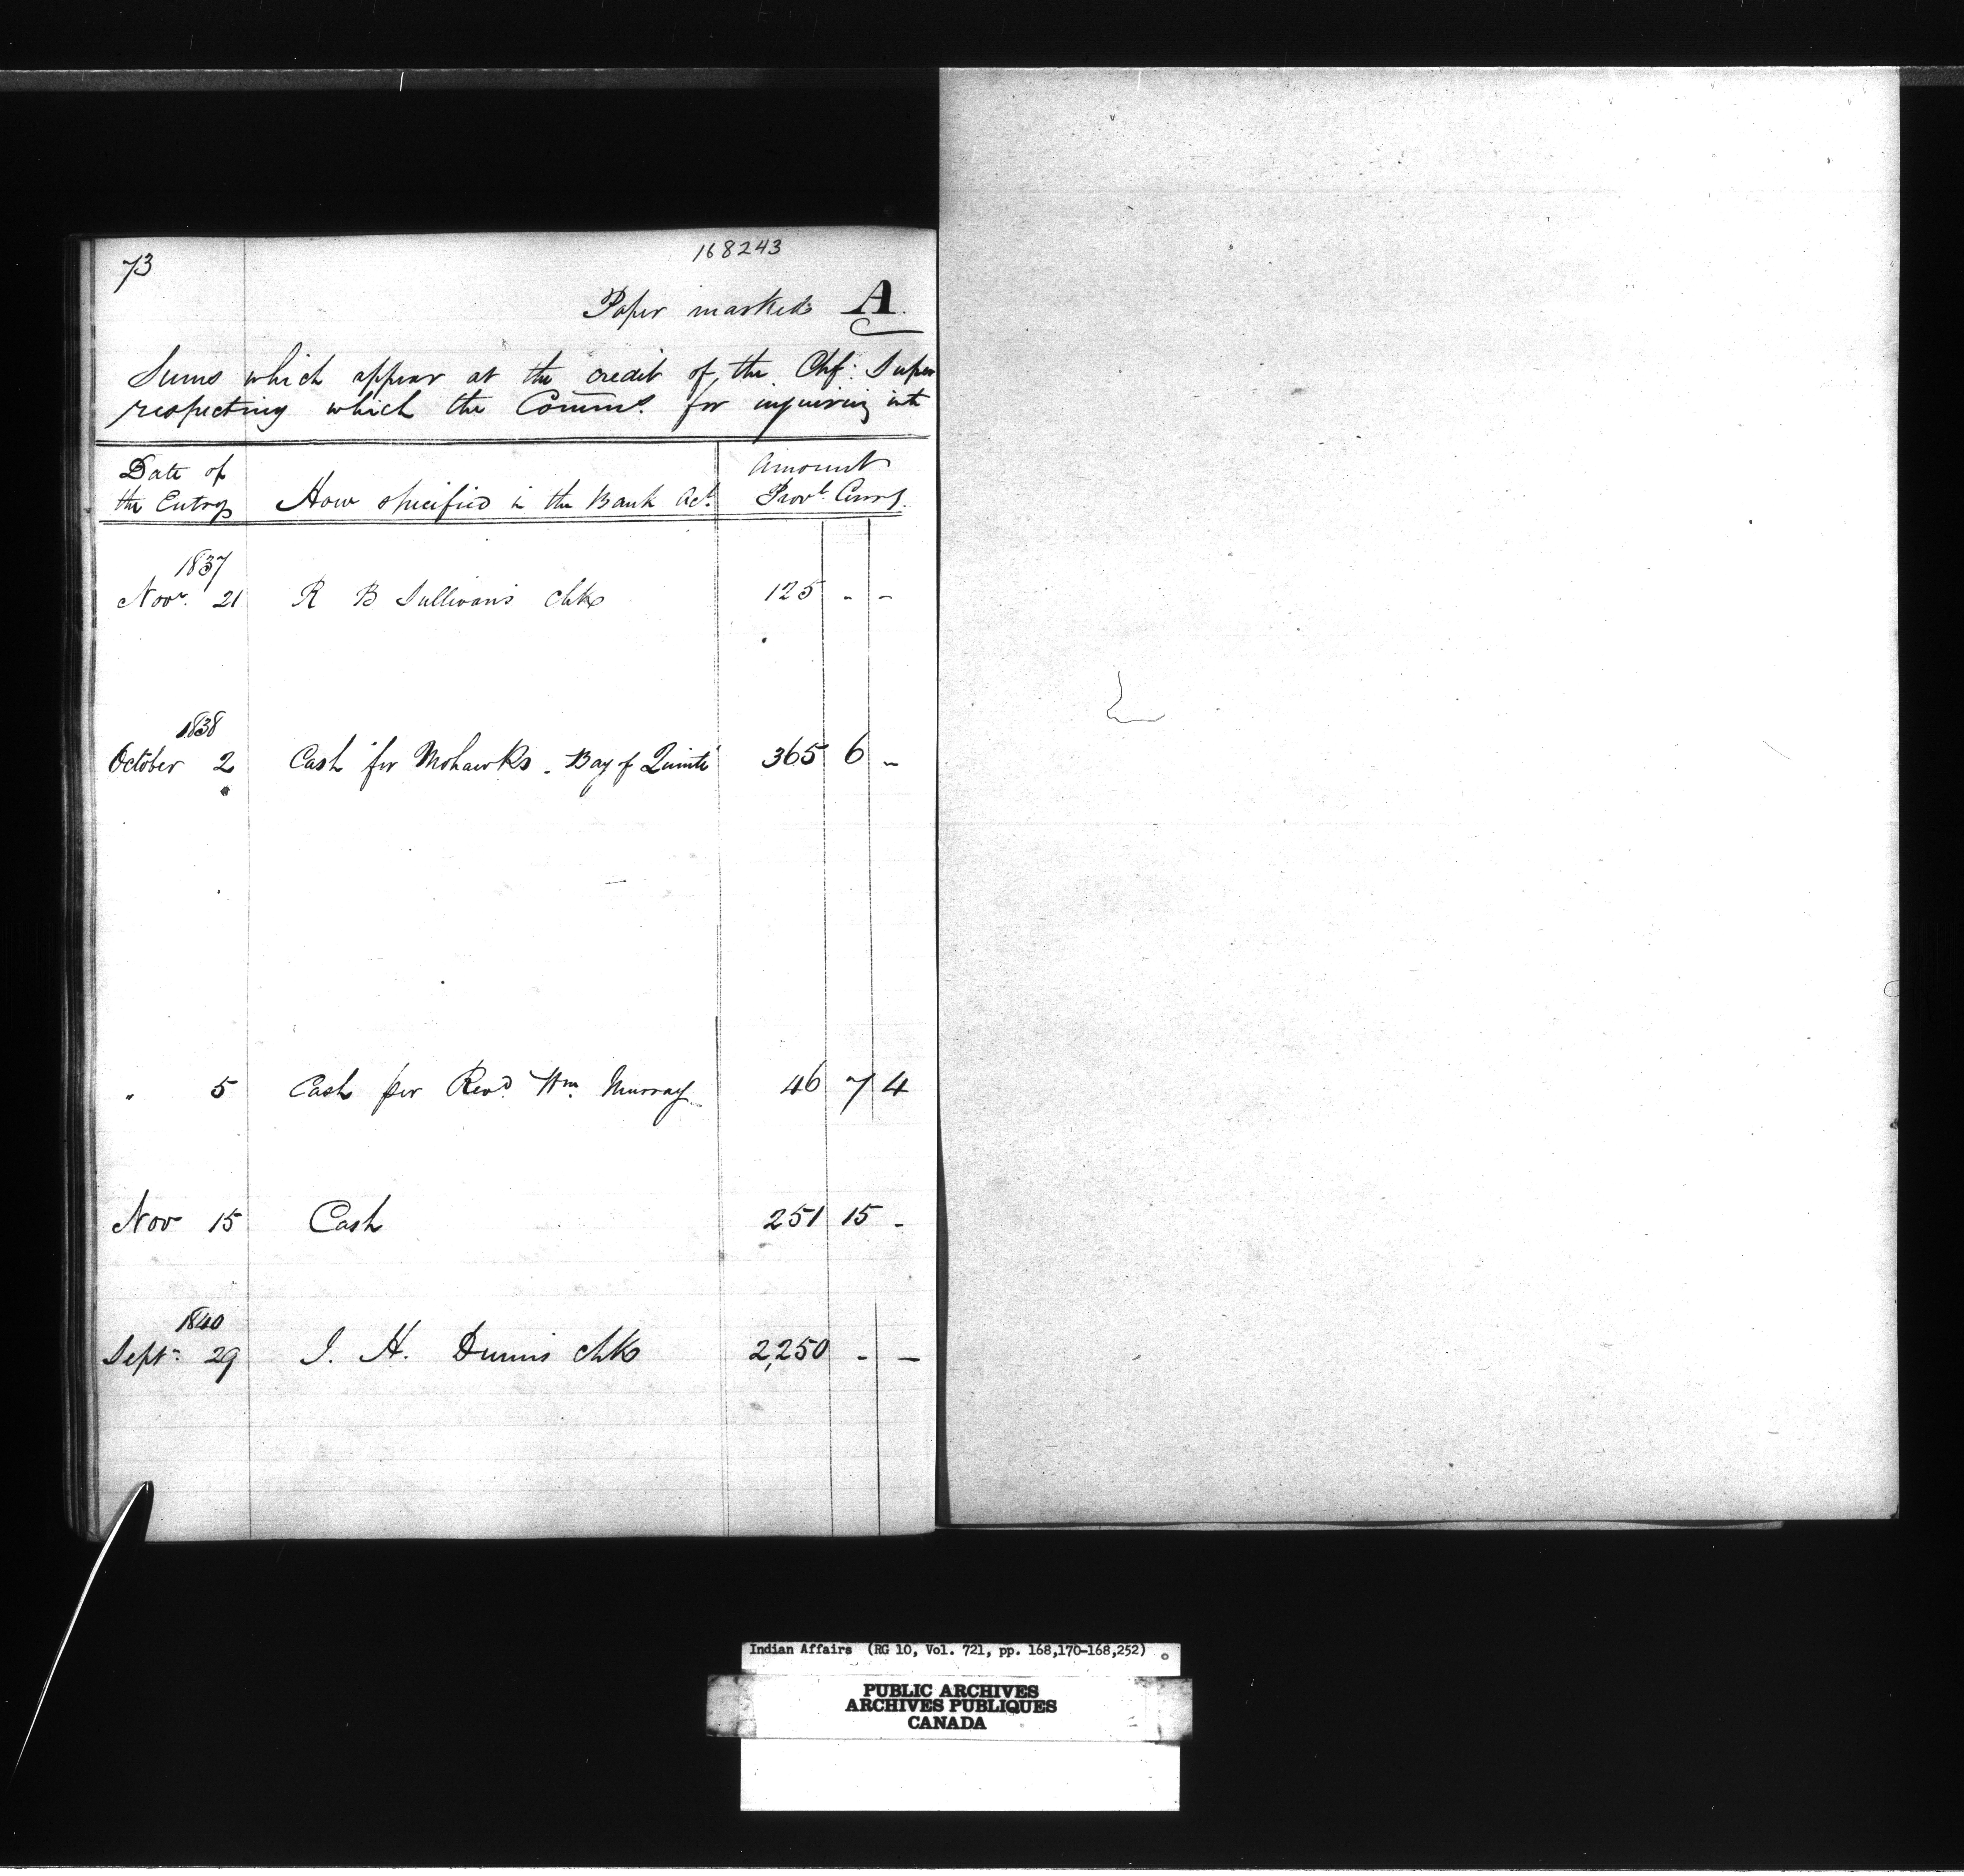 73
168243
Paper marked A.
Sums which appear at the credit of the Chf: Super
respecting which the Comms. for inquiring into
Date of
the Entry
How specified in the Bank Act.
Amount
Provl. Curry.
1837
Novr. 21 R B Sullivans Chk 125 - -
1838
October 2 Cash for Mohawks - Bay of Quinté 365 6 -
" 5 Cash per Revd. Wm. Murray 46 7 4
Nov 15 Cash 251 15 -
1840
Septr. 29 J. H. Dunns chk 2,250 - -
Indian Affairs (RG 10, Vol. 721, pp. 168,170-168,252)
PUBLIC ARCHIVES
ARCHIVES PUBLIQUES
CANADA